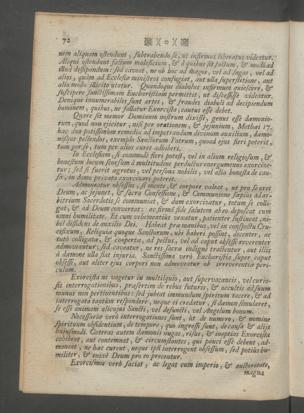 72
nem aliquam ostendunt, subvadendo si, ut infirmus liberatus videretur.
Aliqui ostendunt factum maleficium, & à quibus sit factum, & modum ad
illud dissipandum: sed caveat, ne ob hoc ad magos, vel ad sagas, vel ad
alios, quàm ad Ecclesiæ ministros confugiat, aut ulla superstitione, aut
alio modo illicito utatur. Quandoque diabolus infirmum quiescere, &
suscipere sanctissimam Eucharistiam permittit, ut discessisse videatur.
Denique innumerabiles sunt artes, & fraudes diaboli ad decipiendum
hominem, quibus, ne fallatur Exorcista, cautus esse debet.
Quare sit memor Dominum nostrum dixisse, genus esse dæmonio-
rum, quod non ejicitur, nisi per orationem, & jejunium, Matthæi 17.
hæc duo potissimum remedia ad impetrandum divinum auxilium, dæmo-
nesque pellendos, exemplo Sanctorum Patrum, quoad ejus fieri poterit,
tum per se, tum per alios curet adhiberi.
In Ecclesiam, si commodè fieri potest, vel in alium religiosum, &
honestum locum seorsum à multitudine perductus energumenus exorcize-
tur; sed si fuerit ægrotus, vel persona nobilis, vel alia honesta de cau-
sa, in domo privata exorcizari poterit.
Admoneatur obsessus, si mente & corpore valeat, ut pro se oret
Deum, ac jejunet, & sacra Confessione, & Communione sæpius ad ar-
bitrium Sacerdotis se communiat, & dum exorcizatur, totum se colli-
gat, & ad Deum convertat: ac firma fide salutem ab eo deposcat cum
omni humilitate. Et cum vehementiùs vexatur, patienter sustineat, ni-
hil diffidens de auxilio Dei. Habeat præ manibus, vel in conspectu Cru-
cifixum. Reliquiæ quoque Sanctorum, ubi haberi possint, decenter, ac
tutò colligatæ, & coopertæ, ad pectus, vel ad caput obsessi reverenter
admoveantur; sed caveatur, ne res sacræ indignè tractentur, aut illis
à dæmone ulla fiat injuria. Sanctissima verò Eucharistia super caput
obsessi, aut aliter ejus corpori non admoveatur ob irreverentiæ peri-
culum.
Exorcista ne vagetur in multiloquio, aut supervacaneis, vel curio-
sis interrogationibus, præsertim de rebus futuris, & occultis ad suum
munus non pertinentibus: sed jubeat immundum spiritum tacere, & ad
interrogata tantùm respondere, neque ei credatur, si dæmon simularet,
se esse animam alicujus Sancti, vel defuncti, vel Angelum bonum.
Necessariæ verò interrogationes sunt, ut de numero, & nomine
Spirituum obsidentium, de tempore, quo ingressi sunt, de causa & aliis
hujusmodi. Cæteras autem dæmonis nugas, risus, & ineptias Exorcista
cohibeat, aut contemnat, & circumstantes, qui pauci esse debent, ad-
moneat, ne hæc curent, neque ipsi interrogent obsessum, sed potiùs hu-
militer, & enixè Deum pro eo precentur.
Exorcismos verò faciat, ac legat cum imperio, & authoritate,
magna